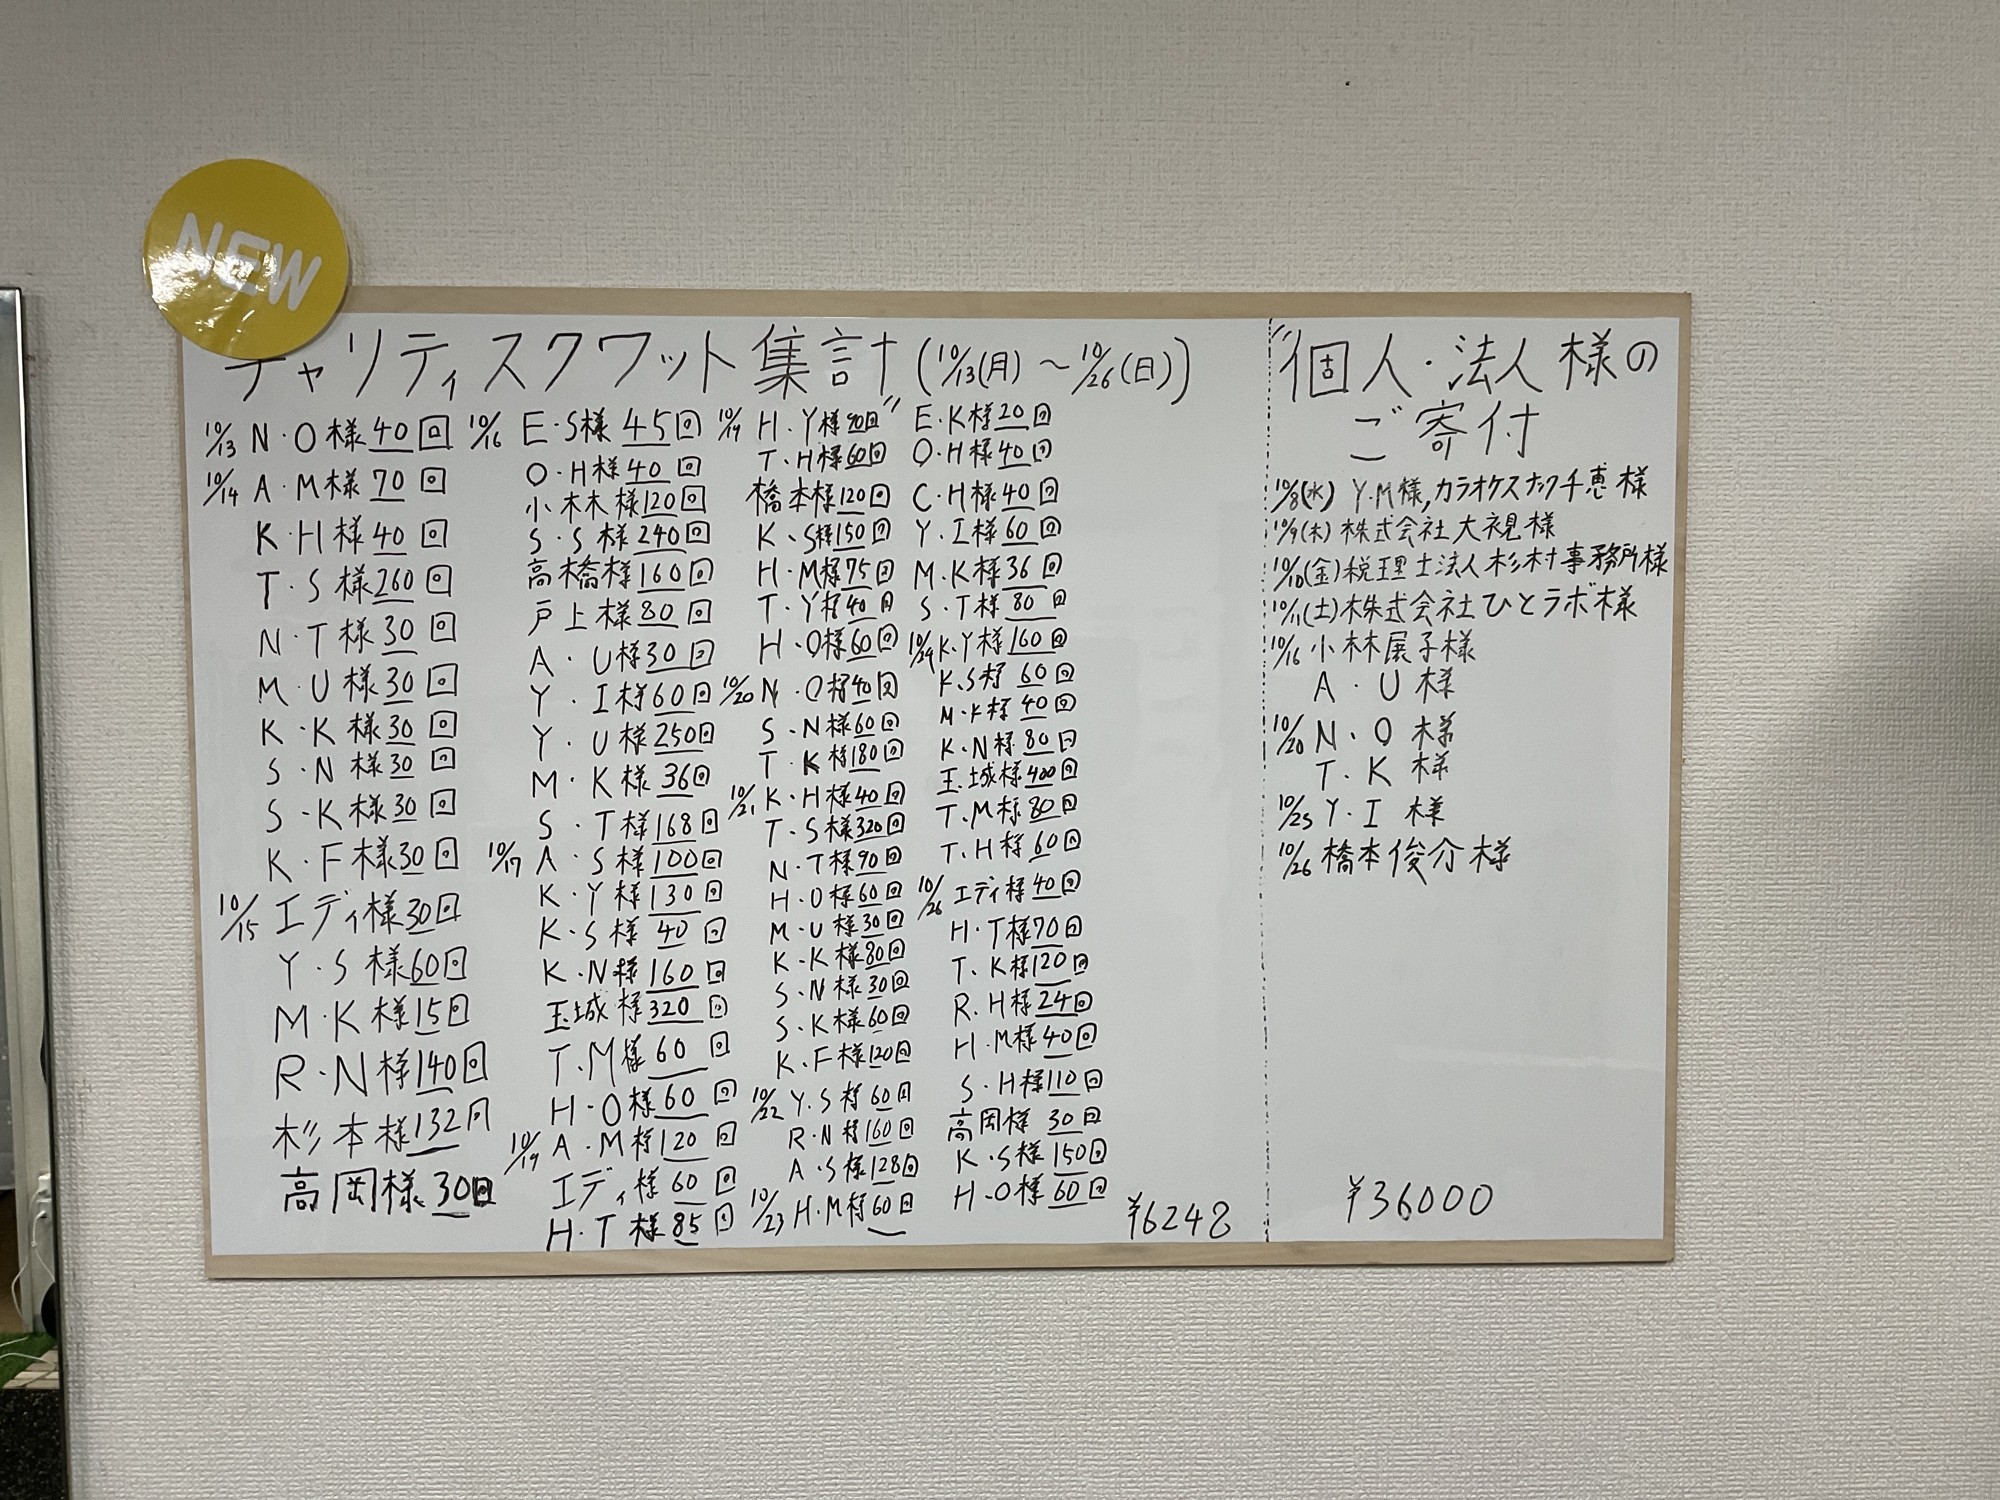 NEW
チャリティスクワット集計(10/13(月)～10/26(日))
10/13 N・O様40回
10/14 A・M様70回
K・H様40回
T・S様260回
N・T様30回
M・U様30回
K・K様30回
S・N様30回
S・K様30回
K・F様30回
10/15 エディ様30回
Y・S様60回
M・K様15回
R・N様140回
杉本様132回
高岡様30回
10/16 E・S様45回
O・H様40回
小林様120回
S・S様240回
高橋様160回
戸上様80回
A・U様30回
Y・I様60回
Y・U様250回
M・K様36回
S・T様168回
10/17 A・S様100回
K・Y様130回
K・S様40回
K・N様160回
玉城様320回
T.M様60回
H・O様60回
10/19 A・M様120回
エディ様60回
H・T様85回
10/19 H・Y様90回"
T・H様60回
橋本様120回
K・S様150回
H・M様75回
T・Y様40回
H・O様60回
10/20 N・O様40回
S・N様60回
T・K様180回
10/21 K・H様40回
T・S様320回
N・T様90回
H・O様60回
M・U様30回
K・K様80回
S・N様30回
S・K様60回
K・F様120回
10/22 Y・S様60回
R・N様160回
A・S様128回
10/23 H・M様60回
E・K様20回
O・H様40回
C・H様40回
Y・I様60回
M・K様36回
S・T様80回
10/24 K・Y様160回
K.S様60回
M・K様40回
K・N様80回
玉城様400回
T.M様80回
T.H様60回
10/26 エディ様40回
H・T様70回
T.K様120回
R.H様24回
H・M様40回
S・H様110回
高岡様30回
K・S様150回
H・O様60回
¥6248
"個人・法人様の
ご寄付
10/8(水) Y・M様,カラオケスナック千恵様
10/9(木) 株式会社大視様
10/10(金)税理士法人杉村事務所様
10/11(土)株式会社ひとラボ様
10/16 小林展子様
A・U様
10/20 N・O様
T・K様
10/25 Y・I様
10/26 橋本俊介様
¥36000